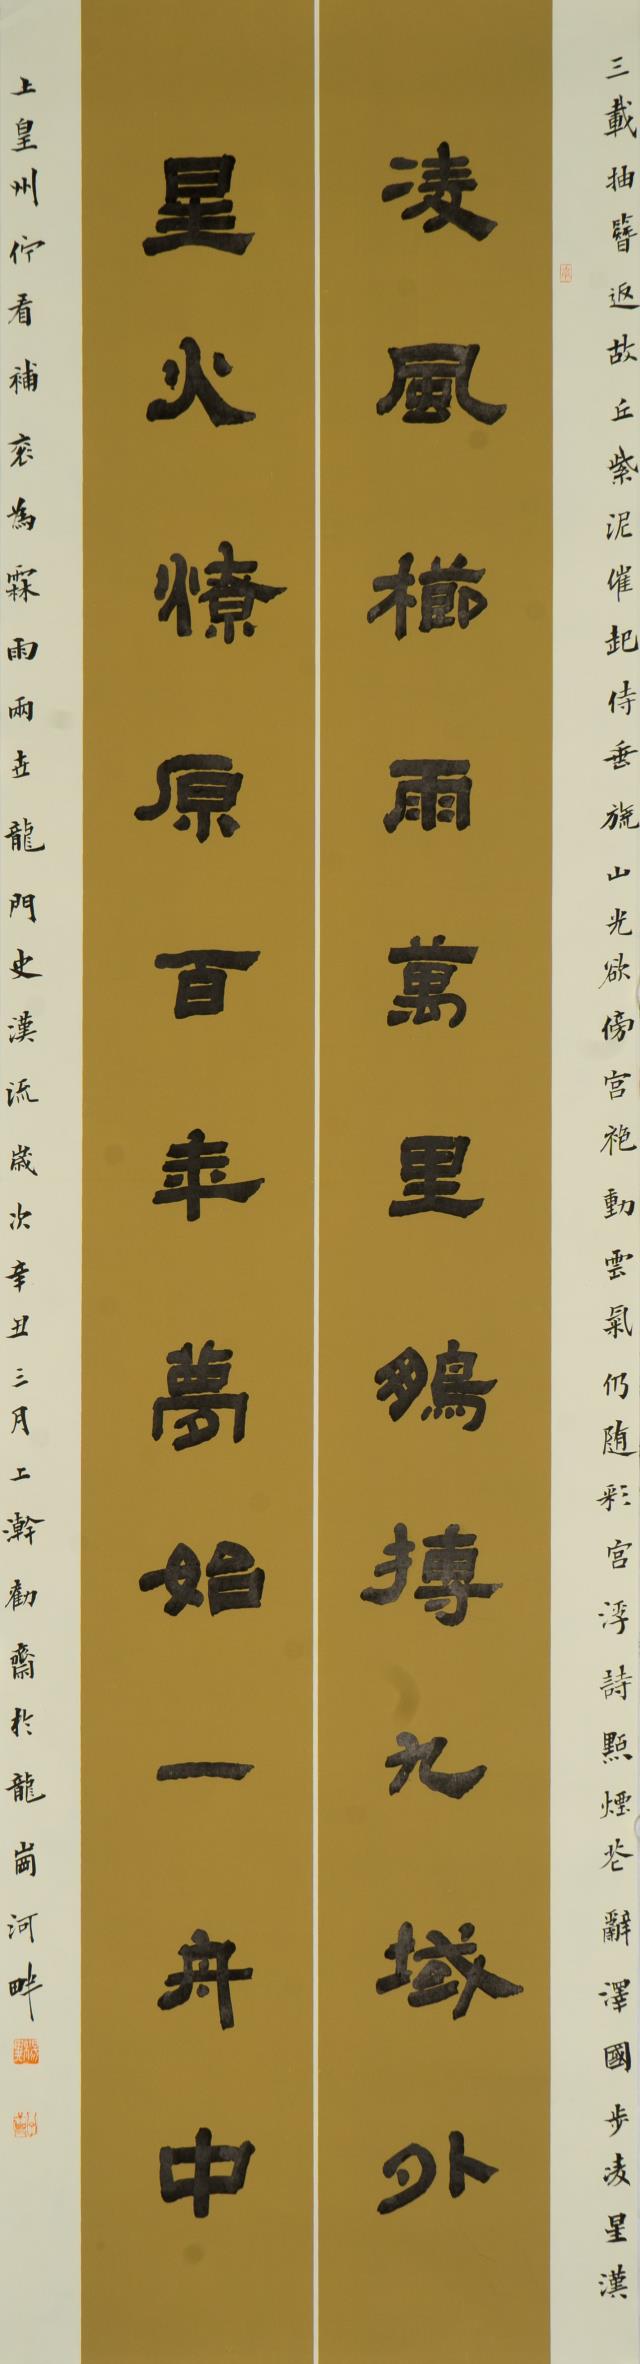 三載抽簪返故丘紫泥催起侍垂旒山光欲傍宫袍動雲氣仍随彩宫浮詩點煙花辭澤國步凌星漢
凌風櫛雨萬里鵷摶九域外
星火燎原百年夢始一舟中
上皇州佇看補衮為霖雨兩世龍門史漢流歲次辛丑三月上澣勸齋於龍崗河畔